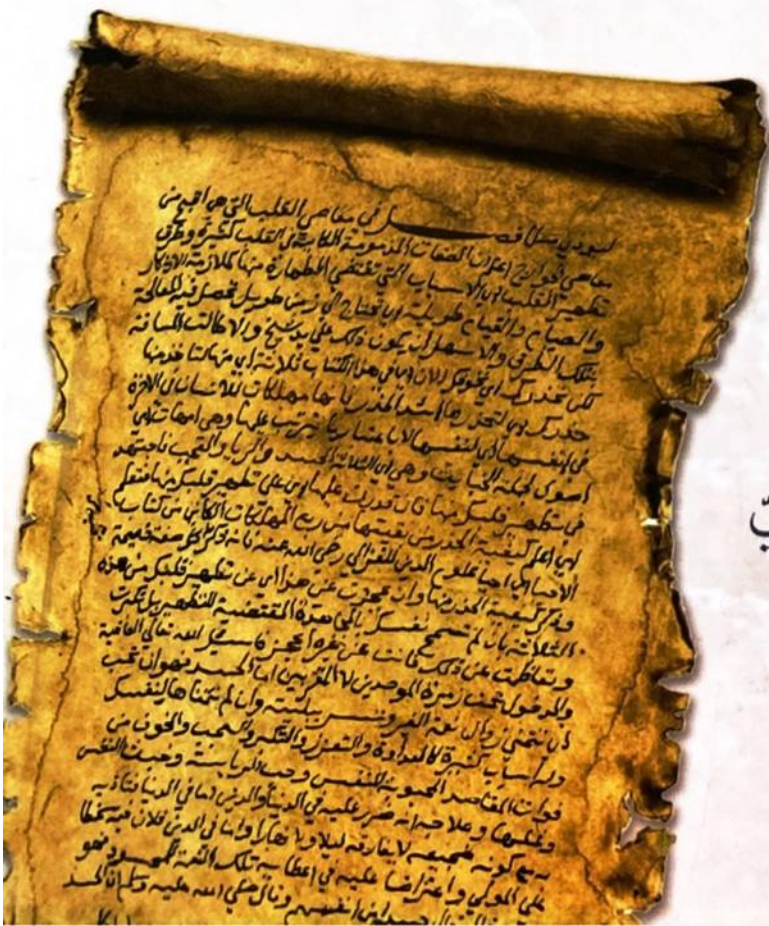 فصل في معاصي القلب التي هي اقبح من
معاصي الجوارح اعلم ان الصفات المذمومة الكاينة في القلب كثيرة وطرق
تطهير القلب اي الاسباب التي تقتضي الطهارة منها كملازمة الاذكار
والصيام والقيام طويلة اي تحتاج الي زمن طويل تحصل فيه المعالجة
بتلك الطرق والاسهل ان يكون ذلك علي يد شيخ والا طالت المسافة
لكن نحذرك اي نخوفك الان اي في هذا الكتاب ثلاثة اي منها
حذرك اي لتحذرها اشد الحذر فانها مهلكات للانسان في الاخرة
في انفسها اي لنفسها لا باعتبار ما يترتب عليها وهي امهات اي
اصول لجملة الخبايث وهي اي الثلاثة الحسد والريا والعجب فاجتهد
في تطهير قلبك منها فان قدرت عليها اي علي تطهير قلبك منها فتعلم
اي اعلم كيفية الحذر من بقيتها من ربع المهلكات الكاين من كتاب
الاحيا اي احيا علوم الدين للغزالي رضي الله عنه فانه ذكر لكل صفة ذميمة
وذكر كيفية الحذر منها وان عجزت عن هذا اي عن تطهير قلبك من هذه
الثلاثة بان لم تسمح نفسك بالمقتضية للتطهير بل تكبرت
وتعاظمت عن ذلك فانت عن غيره اعجز فاسئل الله تعالي العافية
والدخول تحت زمرة الموحدين لا المقربين اما الحسد فهو ان تحب
اي تتمني زوال نعمة الغير وتسر ببليته وان لم تتمناها لنفسك
وله اسباب كثيرة كالعداوة والتعزز والتكبر والعجب والخوف من
فوات المقاصد المحبوبة للنفس وحب الرياسة وخبث النفس
وبخلها وعلاجه انه ضرر عليه في الدنيا والدين اما في الدنيا فتاذيه
به مع كونه ضجيعه لا يفارقه ليلا ولا نهارا واما في الدين فلان فيه سخطا
علي المولي واعتراضا عليه في اعطائه تلك النعمة للمحسود فهو
وقال صلي الله عليه وسلم ان الحسد